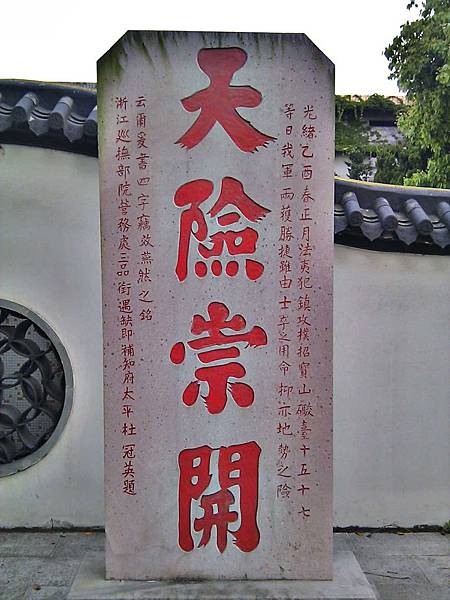 光緒乙酉春正月法夷犯鎮攻撲招寶山礮臺十五十七
等日我軍兩獲勝捷雖由士卒之用命抑亦地勢之險
天險崇開
云爾爰書四字竊效燕然之銘
浙江巡撫部院營務處三品銜遇缺即補知府太平杜冠英題